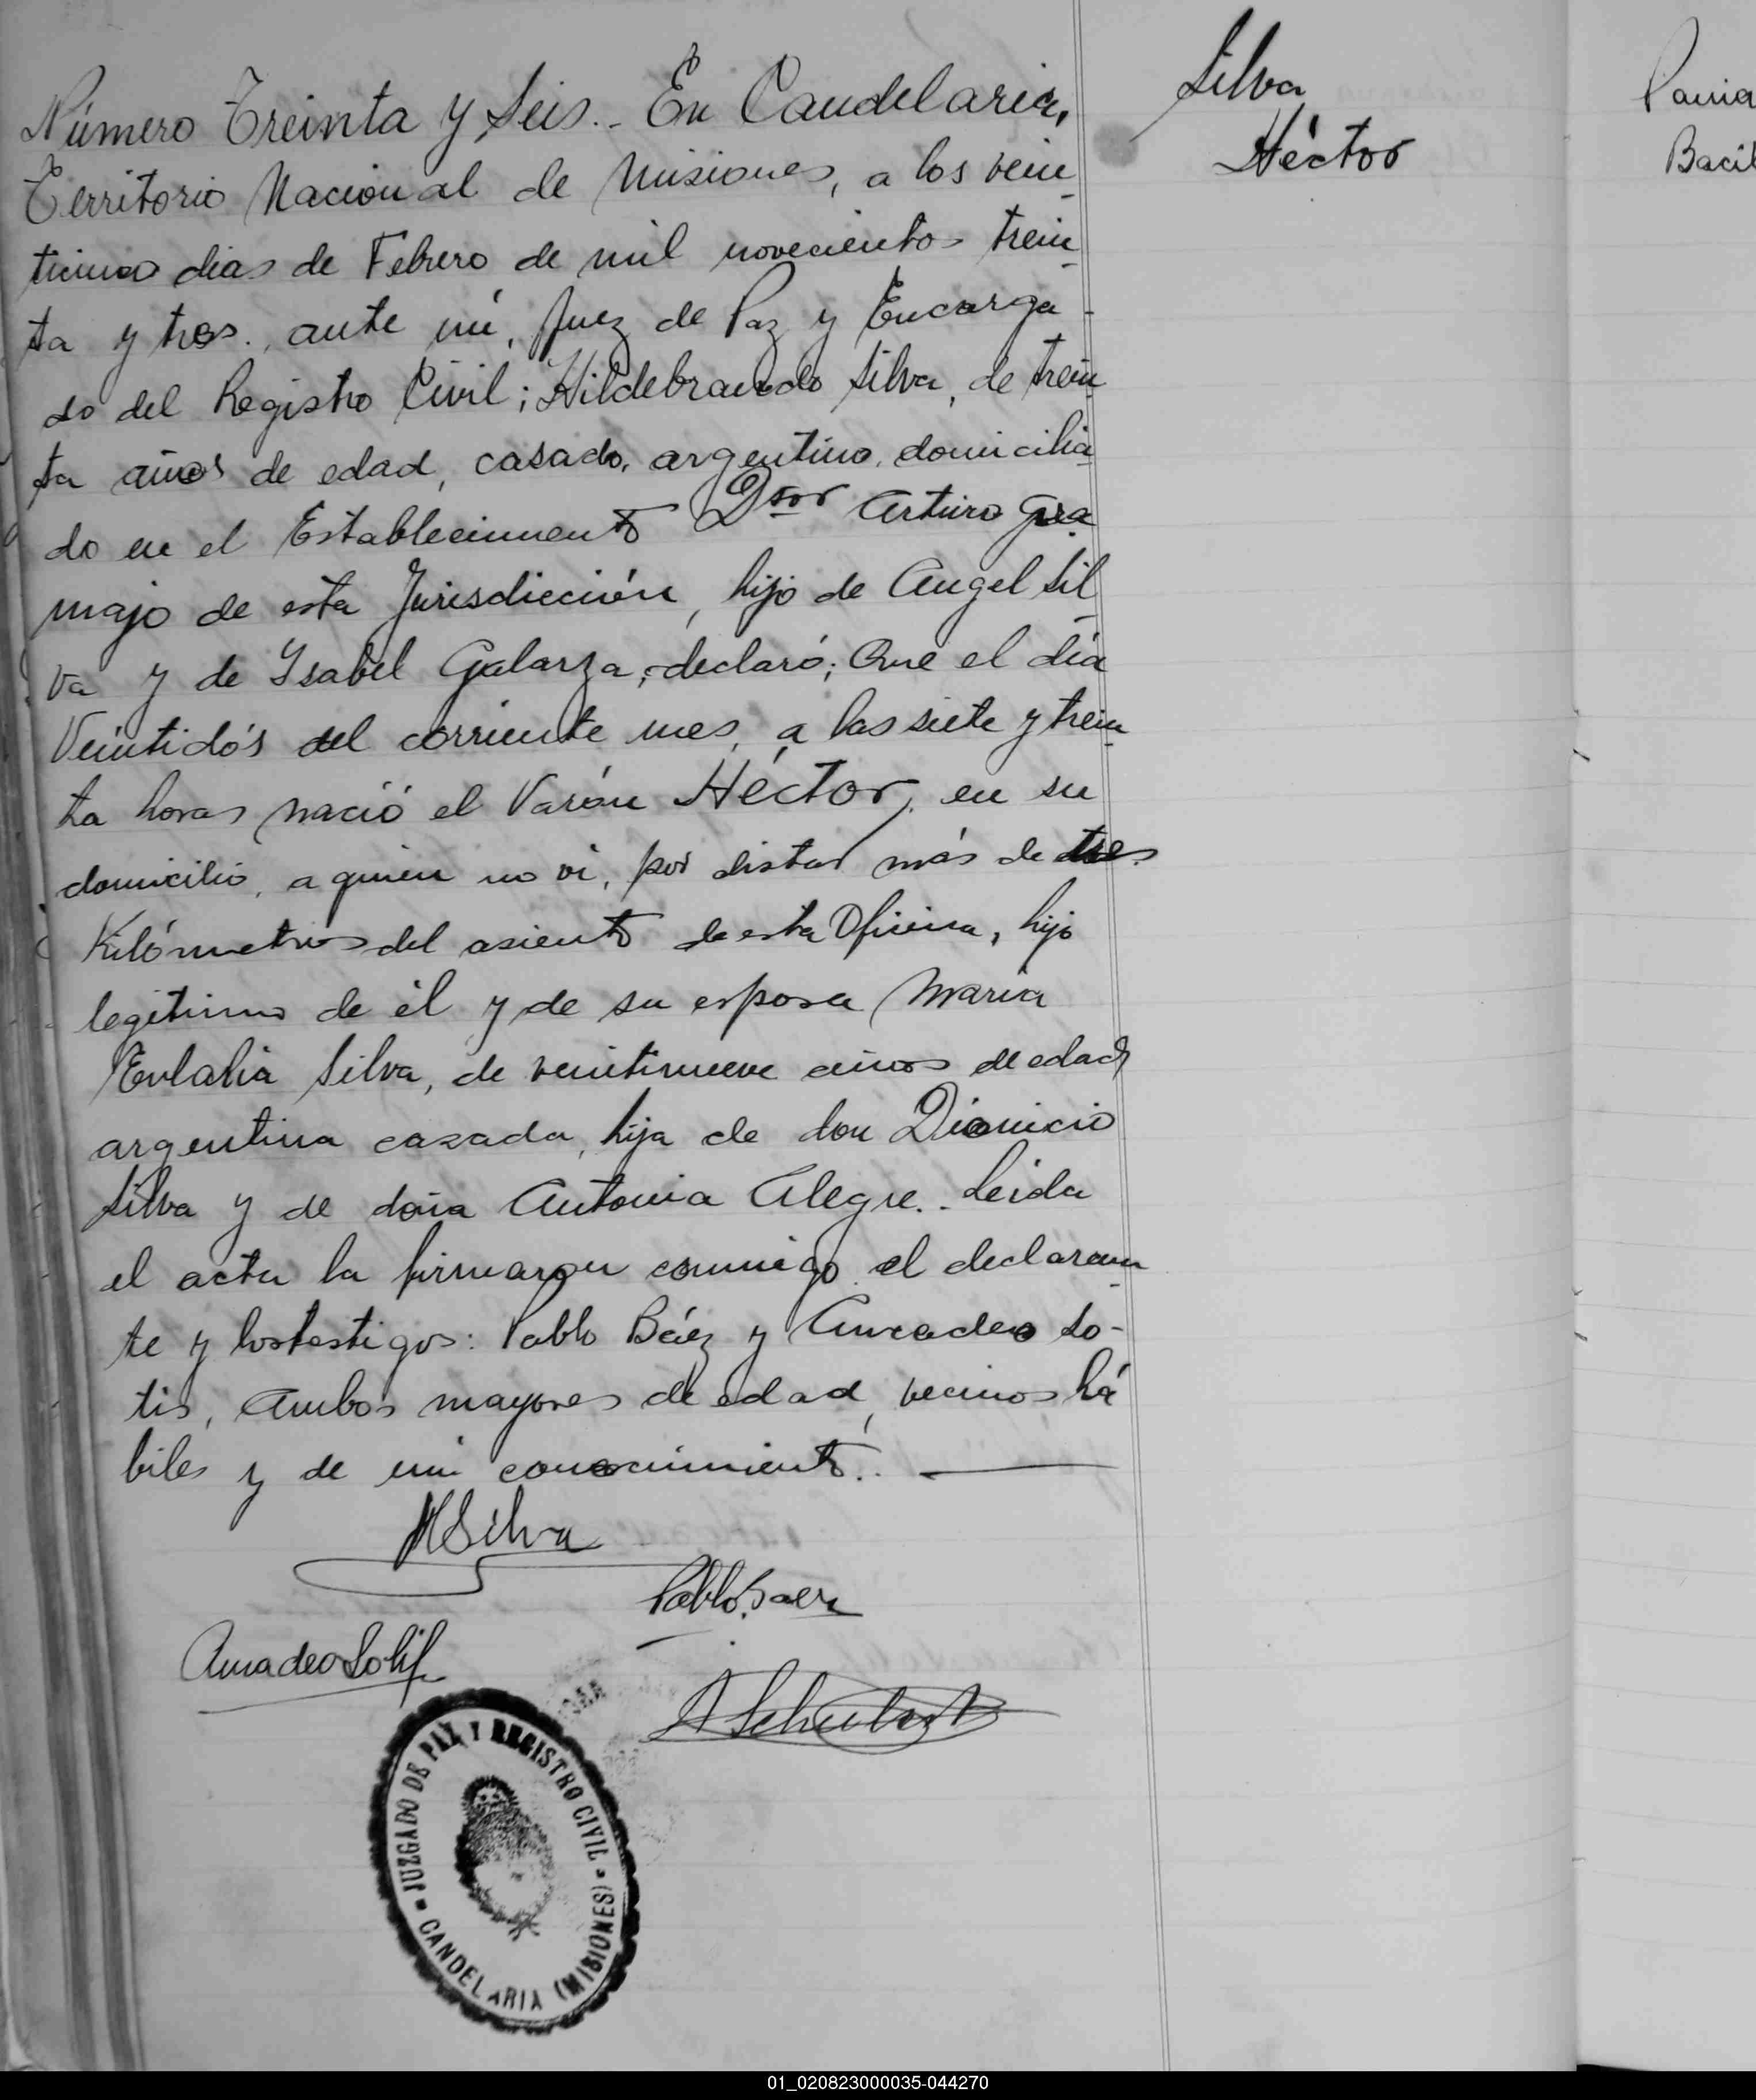 Número Treinta y Seis.. En Candelaria,
Territorio Nacional de Misiones, a los vein
ticinco dias de Febrero de mil novecientos trein
ta y tres., ante mí, Juez de Paz y Encarga-
do del Registro Civil; Hildebrando Silva, de trein
ta años de edad, casado, argentino, domicilia
do en el Establecimiento Dtor Arturo Gra
majo de esta Jurisdicción, hijo de Angel Sil
va y de Ysabel Galarza, declaró; Que el día
Veintidós del corriente mes, a las siete y trein
ta horas nació el Varón Héctor, en su
domicilio, a quien no vi, por distar más de tres
Kilómetros del asiento de esta Oficina, hijo
legítimo de él y de su esposa Maria
Eulalia Silva, de veintinueve años de edad
argentina casada, hija de don Dionicio
Silva y de doña Antonia Alegre.. Leida
el acta la firmaron conmigo el declaran
te y los testigos: Pablo Báez y Amadeo So-
tis, ambos mayores de edad, vecinos há
biles y de mi conocimiento..
HSilva
Pablo Baez
Amadeo Sotis
JUZGADO DE PAZ Y REGISTRO CIVIL
CANDELARIA (MISIONES)
Silva
Héctor
Bacil
01_020823000035-044270